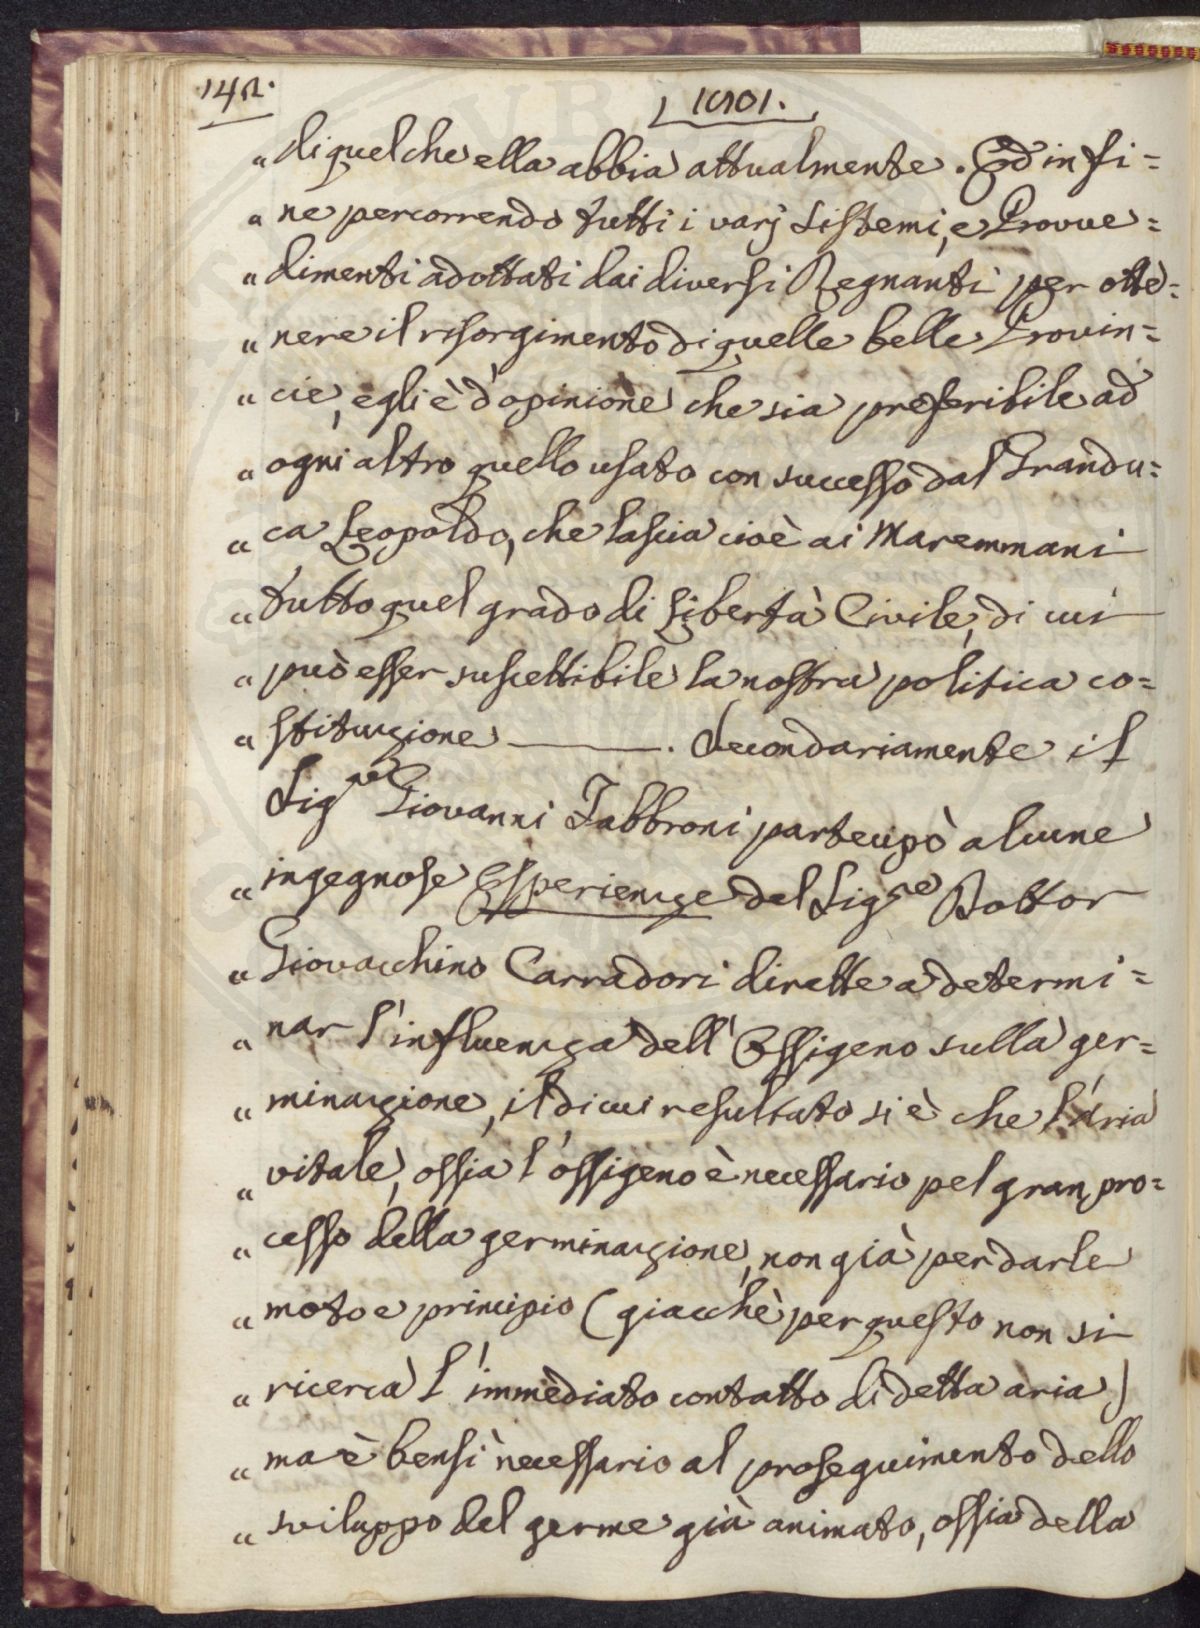 142.
1801.
" di quel che ella abbia attualmente. Ed in fi=
" ne percorrendo tutti i varj Sistemi, e Provve=
" dimenti adottati dai diversi Regnanti per otte=
" nere il risorgimento di quelle belle Provin=
" cie, egli è d'opinione che sia preferibile ad
" ogni altro quello usato con successo dal Grandu=
" ca Leopoldo, che lascia cioè ai Maremmani
" tutto quel grado di Libertà Civile, di cui
" può esser suscettibile la nostra politica co=
" stituzione ———. Secondariamente il
Sig.re Giovanni Fabbroni partecipò alcune
" ingegnose Esperienze del Sig.re Dottor
" Giovacchino Carradori dirette a determi=
" nar l'influenza dell'Ossigeno sulla ger=
" minazione, il di cui resultato si è che l'aria
" vitale, ossia l'ossigeno è necessario pel gran pro=
" cesso della germinazione, non già per darle
" moto e principio (giacchè per questo non si
" ricerca l'immediato contatto di detta aria)
" ma è bensì necessario al proseguimento dello
" sviluppo del germe già animato, ossia della